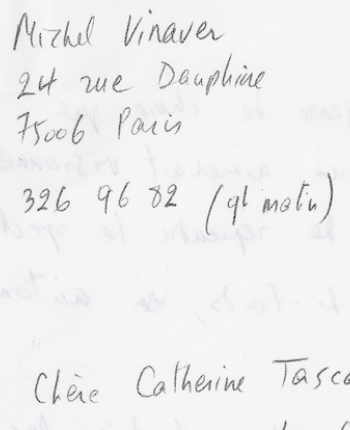 Michel Vinaver
24 rue Dauphine
75006 Paris
326 96 82 (9h matin)
Chère Catherine Tasca